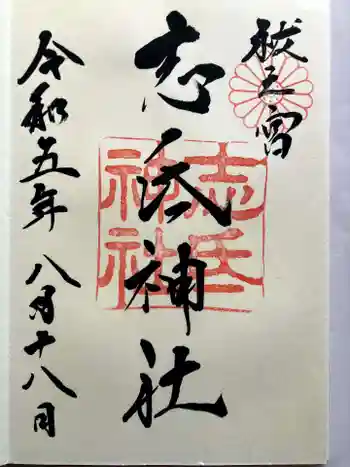 祓之宮
志氐神社
令和五年 八月十八日
志氐
神社